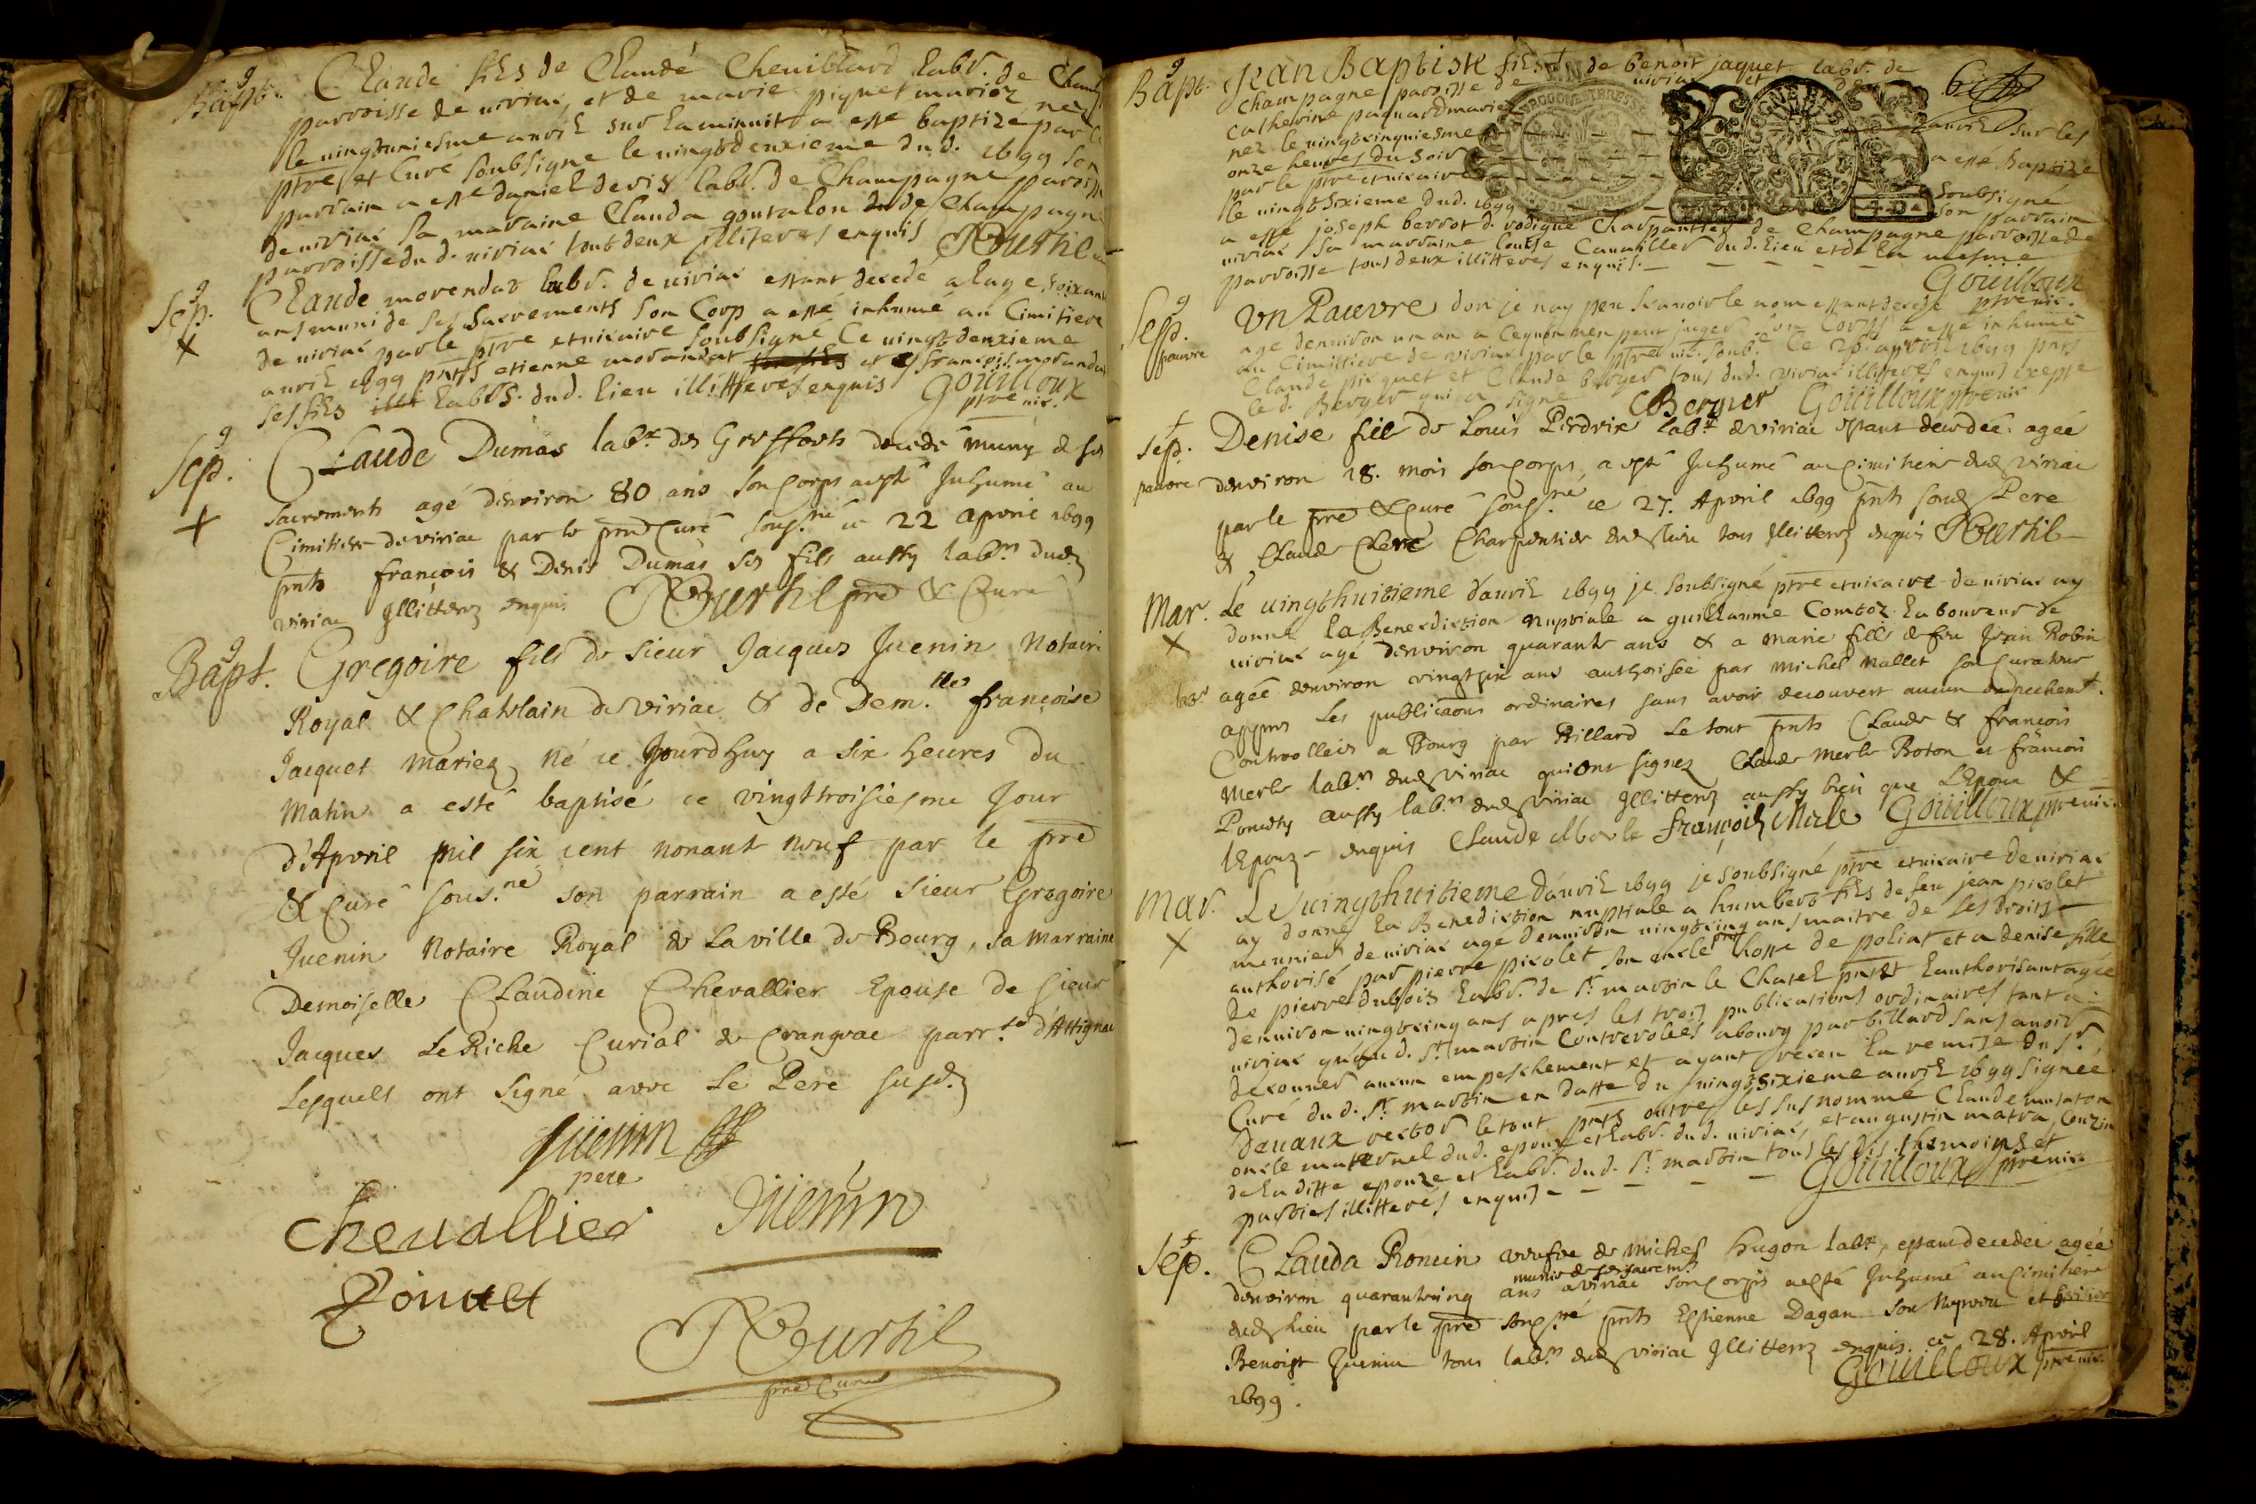 Bapt. Claude fils de Claude Cheviblard labr. de Champ
parroisse de viriac, et de marie piquet mariez, ne
le vingtuniesme avril sur la minuit a esté baptizé par le
ptre et Curé soubsigné le vingtdeuxieme dud. 1699 son
parrain a esté daniel devis labr. de Champagne parroisse
de viriac sa marraine Clauda goutalon de Champagne
parroisse dud. viriac tout deux illiteres enquis
Sep. Claude morendat labr. de viriac estant decedé a lage soixante
ans muni de ses sacrements son Corp a esté inhumé au Cimitiere
de viriac par le ptre et vicaire soubsigné Ce vingtdeuxieme
avril 1699 pnts etienne morandat et francois morandat
ses fils labrs. dud. lieu illitteres enquis Goüilloux
ptre vic.
Sep. Claude Dumas labr des Greffets decedé muny de ses
sacrements agé denviron 80 ans son corps a esté Inhumé au
Cimitiere de viriac par le pre Curé sousné ce 22 apvril 1699
pnts françois & Denis Dumas ses fils aussy labrs dud
viriac Illitterez enquis pre & Curé
Bapt. Gregoire fils de sieur Jacques Juenin Notaire
Royal & Chatelain de viriac & de Dem.lle françoise
Jacquet mariez né ce Jourdhuy a six heures du
matin a esté baptisé ce vingttroisiesme Jour
d'Apvril mil six cent nonant neuf par le pre
& Curé sous.né son parrain a esté sieur Gregoire
Juenin Notaire Royal de La ville de Bourg, sa marraine
Demoiselle Claudine Chevallier Epouse de sieur
Jacques Le Riche Curial de Crangeac parr.se d'Attignat
Lesquels ont signé avec Le Pere susd.
Juenin
pere
Chevallier Juenin
pre Curé
Bapt. Jean Baptiste fils de benoit jaquet labr. de
Champagne parroisse de viriac et de
Catherine paquard mariez
nez le vingtcinquiesme d'avril sur les
onze heures du soir a esté baptize
par le ptre et vicaire soubsigné
le vingtsixieme dud. 1699 son parrain
a esté joseph berrot d. rodigue Charpantier de Champagne parroisse de
viriac sa marraine louise Canailler dud. lieu et de la mesme
parroisse tous deux illitteres enquis.
Goüilloux
ptre vic.
Sep. pauvre
Un Pauvre don je nay peu scavoir le nom estant decede
age denviron un an a Cequon nen peut juger son Corps a esté inhumé
au Cimittiere de viriac par le ptre vic. soub.é Ce 26. apvril 1699 pnts
Claude piquet et Claude berger tous dud. viriac illiteres enquis exepte
le d. Berger qui a signé CBerger Goüilloux ptre vic
Sep. pauvre
Denise fille de Louis Perdrix labr de viriac estant decedée agée
denviron 18. mois son corps a esté Inhumé au Cimitiere dud viriac
par le pre & Curé souss.né ce 27. Apvril 1699 pnts sond Pere
& Claude Clerc Charpentier dud lieu tous Illitterez enquis
Mar. Le vingthuitieme d'avril 1699 je soubsigné ptre et vicaire de viriac ay
donné la Benerdiction nuptiale a guillaume Comtoz laboureur de
viriac agé denviron quarante ans & a marie fille de feu Jean Robin
agée denviron vingtsix ans authorisée par michel mallet son curateur
appres les publicaons ordinaires sans avoir decouvert aucun empechemt.
Controollées a Bourg par Billard Le tout pnts Claude & françois
merle labrs dud viriac qui ont signez Claude merle Boton et françois
aussy labrs dud viriac Illitterez aussy bien que L'Epoux &
lEpouze enquis Claude Merle françois Merle Goüilloux ptre vic.
Mar. Le vingthuitieme d'avril 1699 je soubsigné ptre et vicaire de viriac
ay donné la Benediction nuptiale a humbert fils de feu jean picolet
meunier de viriac age denviron vingtcinq ans maitre de ses droits
authorisé par pierre picolet son oncle hoste de poliat et a denise fille
de pierre dubois labr. de st. martin le Chatel pnt et lauthorisant agée
denviron vingtcinq ans apres les trois publications ordinaires tant a
viriac quaud. st. martin Controlées abourg par billard sans avoir
decouver aucun empeschement et ayant receu la remise du sr.
Curé dud. st. martin en datte du vingtsixieme avril 1699 signée
devaux rector le tout pnts outre les susnomme Claude mutaton
oncle maternel dud. epoux et labr. dud. viriac, et augustin matra Couzin
de la ditte epouze et labr. dud. st. martin tous lesdts. themoins et
parties illitteres enquis Goüilloux ptre vic.
Sep. Clauda Ronein veufve de michel hugon labr, estant decedée agée
munie de ses sacremts
denviron quarantecinq ans a viriac son corps a esté Inhumé au Cimitiere
dud lieu par le pre sousné pnts Estienne Dagan son Nepveu et
Benoist Juenin tous labrs dud viriac Illitterez enquis. ce 28. Apvril
1699. Goüilloux ptre vic.